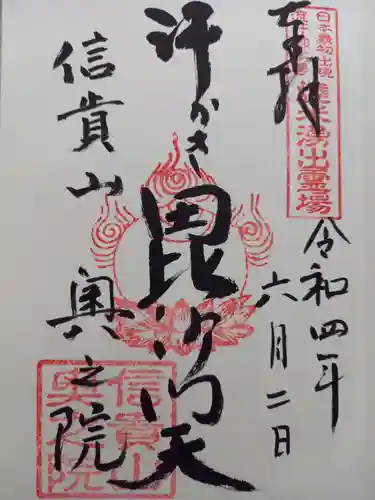 奉拝
日本最初出現
焼米湧出霊場
令和四年
六月二日
汗かき毘沙門天
信貴山
奥之院
信貴山
奥之院